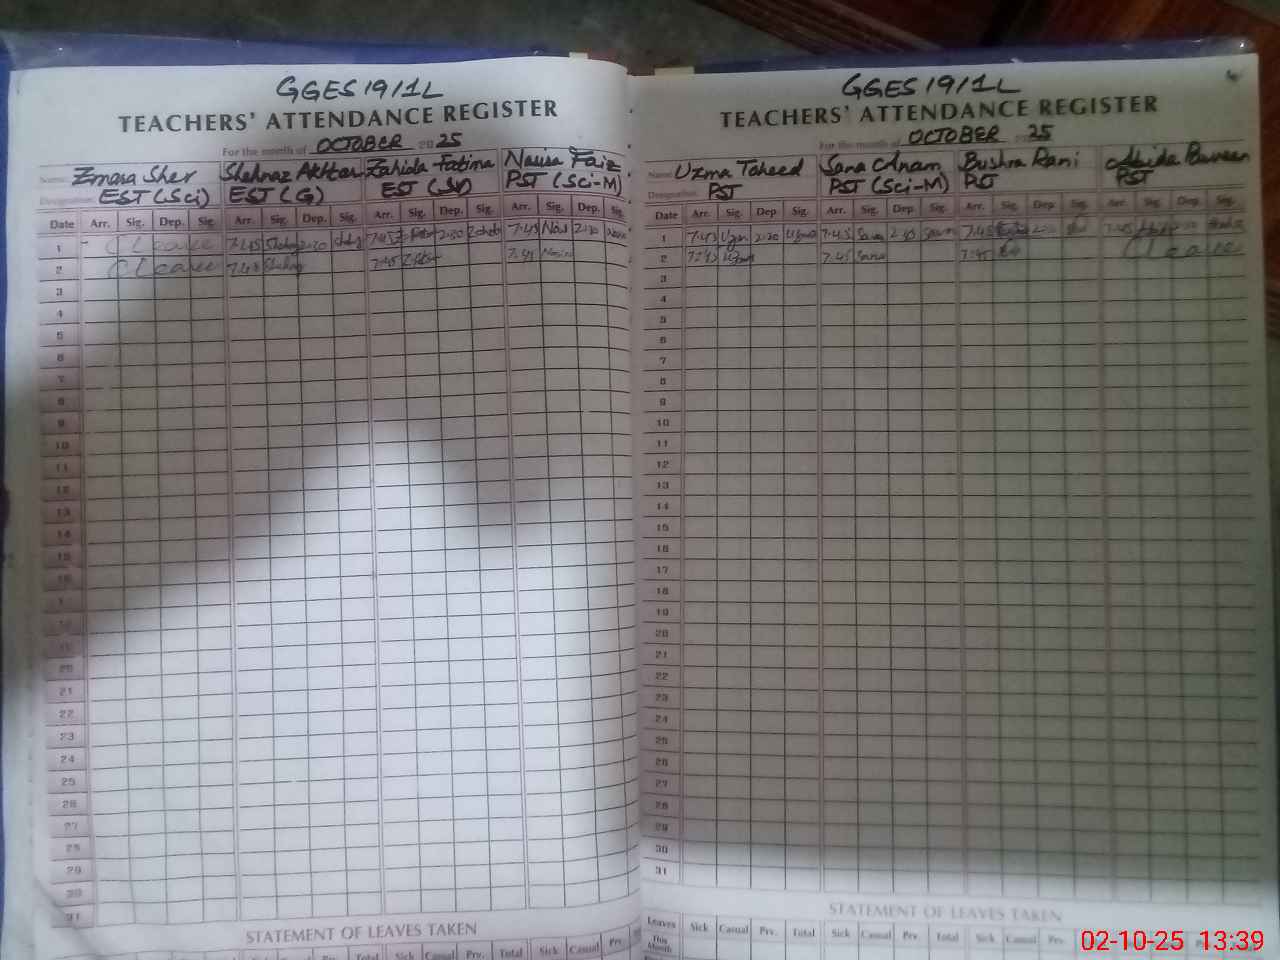 GGES 19/1L
TEACHERS' ATTENDANCE REGISTER
For the month of OCTOBER 2025
Name Zmara Sher Shehnaz Akhtar Zahida Fatima Nasira Faiz
Designation EST (Sci) EST (G) EST PST (Sci-M)
Date Arr. Sig. Dep. Sig. Arr. Sig. Dep. Sig. Arr. Sig. Dep. Sig. Arr. Sig. Dep. Sig.
1 C Leave 7:45 2:30 7:45 2:30 7:45 2:30
2 C Leave 7:45 7:45 7:45
3
4
5
6
7
8
9
10
11
12
13
14
15
16
17
18
19
20
21
22
23
24
25
26
27
28
29
30
31
STATEMENT OF LEAVES TAKEN
Sick Casual Prv. Total Sick Casual Prv.
GGES 19/1L
TEACHERS' ATTENDANCE REGISTER
For the month of OCTOBER 25
Name Uzma Taheed Sana Anam Bushra Rani Abida Parveen
Designation PST PST (Sci-M) PST PST
Date Arr. Sig. Dep Sig. Arr. Sig. Dep. Sig. Arr. Sig. Dep. Sig. Arr. Sig. Dep. Sig.
1 7:45 Uzma 2:30 Uzma 7:45 Sana 2:30 Sana 7:45 7:45
2 7:45 Uzma 7:45 Sana 7:45 C Leave
3
4
5
6
7
8
9
10
11
12
13
14
15
16
17
18
19
20
21
22
23
24
25
26
27
28
29
30
31
STATEMENT OF LEAVES TAKEN
Leaves Sick Casual Prv. Total Sick Casual Prv. Total Sick Casual Prv.
This Month
02-10-25 13:39